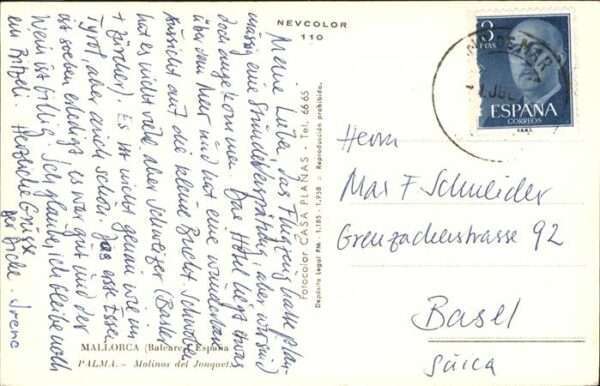 NEVCOLOR
110
Meine Liebe, das Flugzeug hatte plan-
mässig eine Stunde Verspätung, aber wir sind
doch angekommen. Das Hotel liegt etwas
über dem Meer und hat eine wunderbare
Aussicht auf die kleine Bucht. Schwaben
hat es nicht viele, aber Schweizer (Basler
+ Zürcher). Es ist nicht genau wie im
Tyrol, aber auch schön. Das erste Essen
ist soeben erledigt es war gut und der
Wein ist billig. Ich glaube, ich bleibe noch
ein Bitzeli. Herzliche Grüsse
Irene
MALLORCA (Baleares) España
PALMA. - Molinos del Jonquet
Fotocolor CASA PLANAS - Tel. 6665
Depósito Legal PM. 1.185 - 1.958 - Reproducción prohibida.
3
PTAS
ESPAÑA
CORREOS
Herrn
Max F Schneider
Grenzacherstrasse 92
Basel
Suica